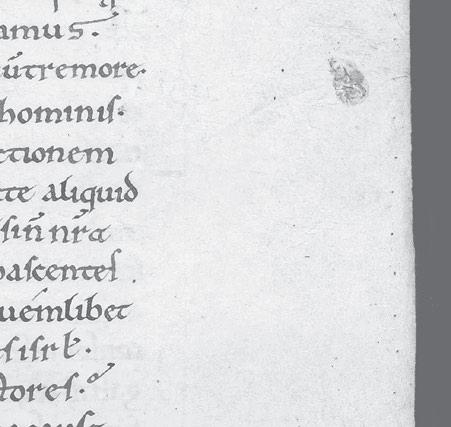 amus.
ūtremore.
hominiſ.
ctionem
te aliquid
ſin̄ nr̄a
paſcenteſ.
uemlibet
ſiſrł.
toreſ.